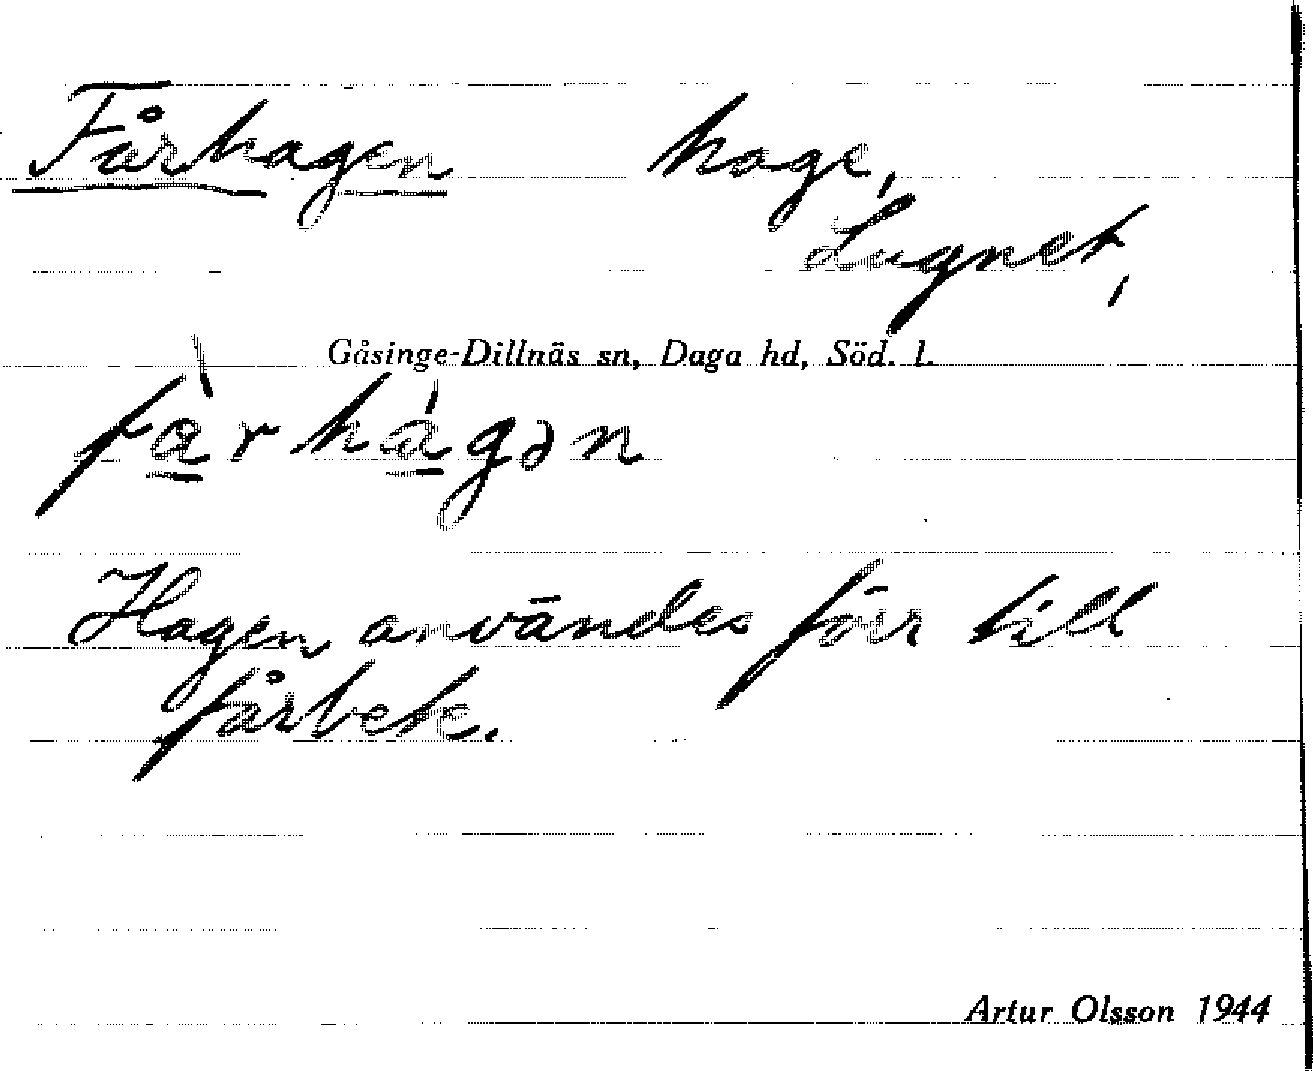 Fårhagen hage,
Lugnet,
Gåsinge-Dillnäs sn, Daga hd, Söd. l.
fàrhágən
Hagen användes förr till
fårbete.
Artur Olsson 1944